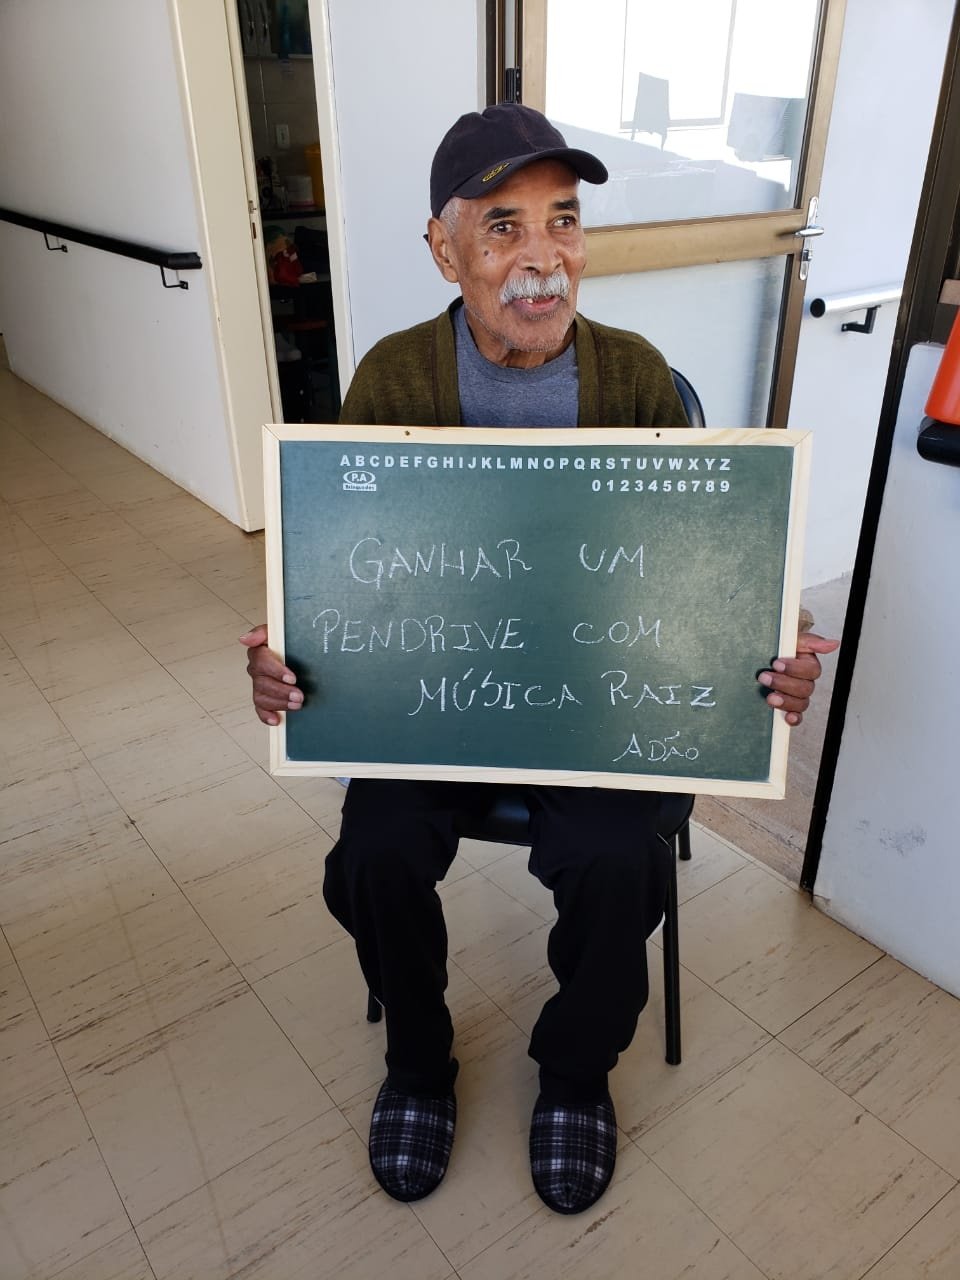 ABCDEFGHIJKLMNOPQRSTUVWXYZ
P.A
Brinquedos
0123456789
GANHAR UM
PENDRIVE COM
MÚSICA RAIZ
ADÃO